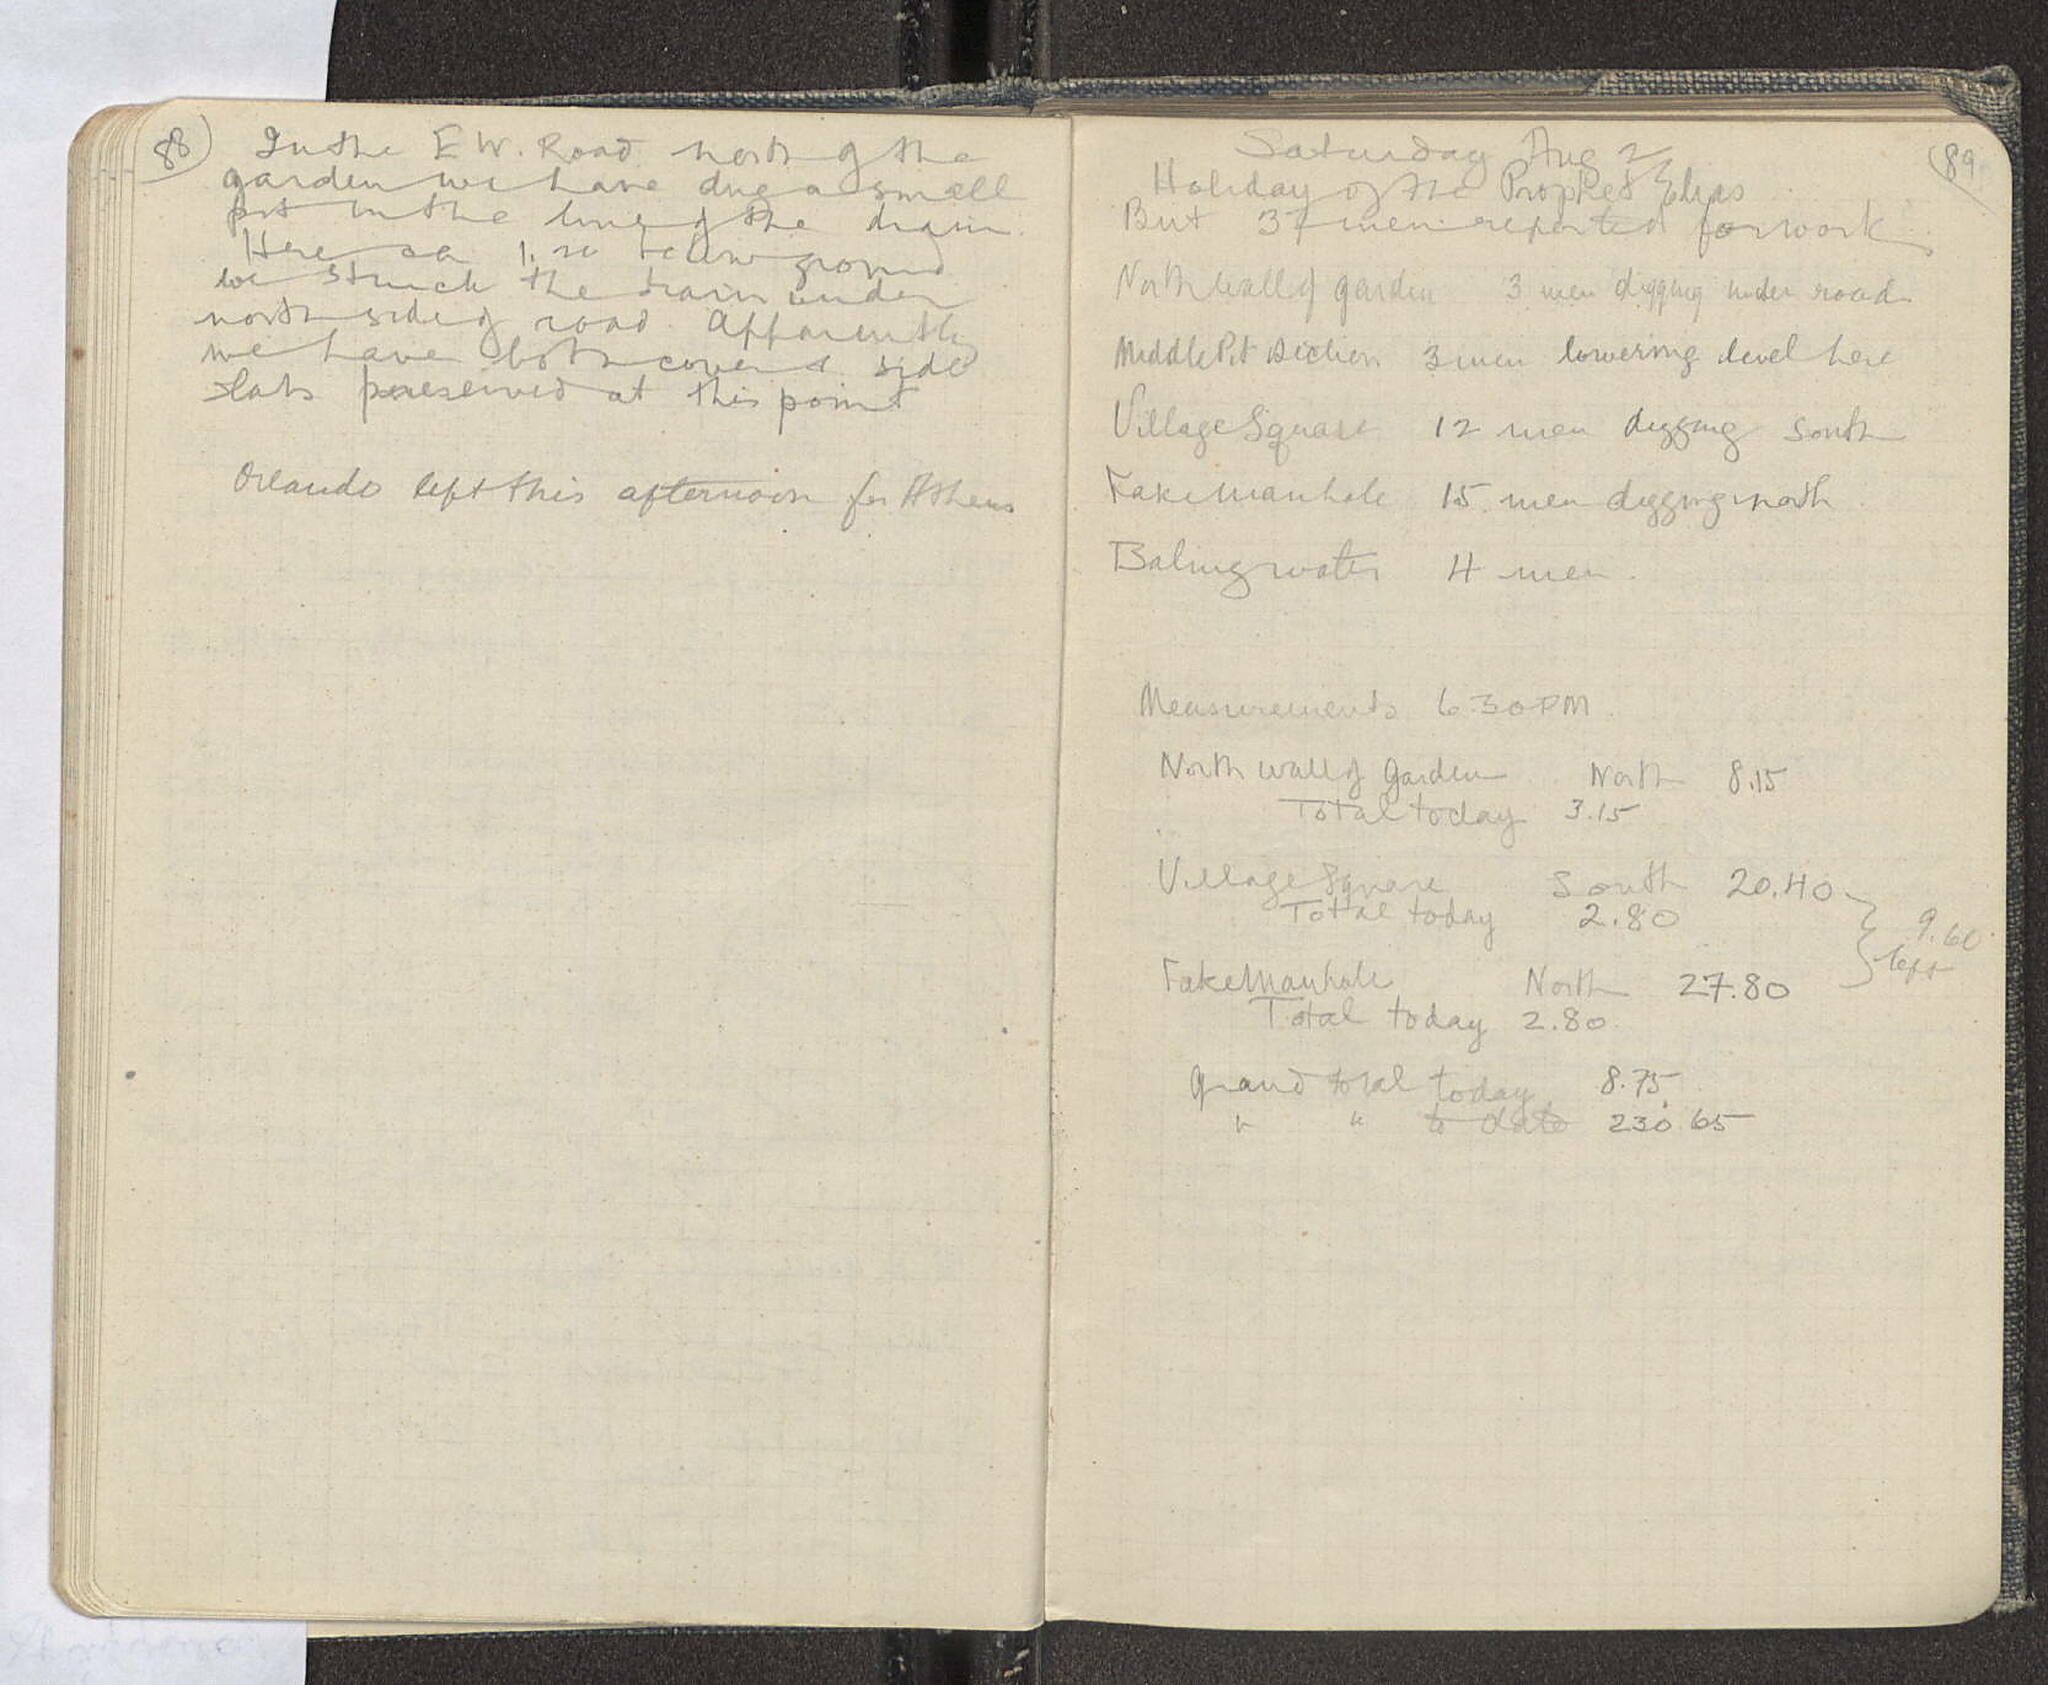 88
In the E W. Road north of the
garden we have dug a small
pit in the line of the drain.
Here ca 1.50 below ground
we struck the drain under
north side of road. Apparently
we have both cover & side
slabs preserved at this point
Orlando left this afternoon for Athens
89
Saturday Aug 2
Holiday of the Prophet Elias
But 37 men reported for work
North wall of garden 3 men digging under road
Middle Pit Section 3 men lowering level here
Village Square 12 men digging south
Fake manhole 15 men digging north
Baling water 4 men.
Measurements 6 30 PM
North wall of garden North 8.15
Total today 3.15
Village Square South 20.40
Total today 2.80
9.60
left
Fake Manhole North 27.80
Total today 2.80
Grand total today 8.75
" " to date 230.65